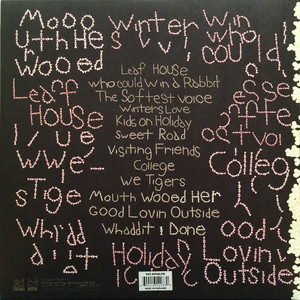 Mooo
uth He
wooed
Leaff
House
wwe-
stige
Winter Win
who
could
esse
ffte
Colleg
Holiday Lovin
Outside
Leaf House
who could win a Rabbit
The Softest Voice
Winters Love
Kids on Holiday
Sweet Road
Visiting Friends
College
We Tigers
Mouth Wooed Her
Good Lovin Outside
Whaddit I Done